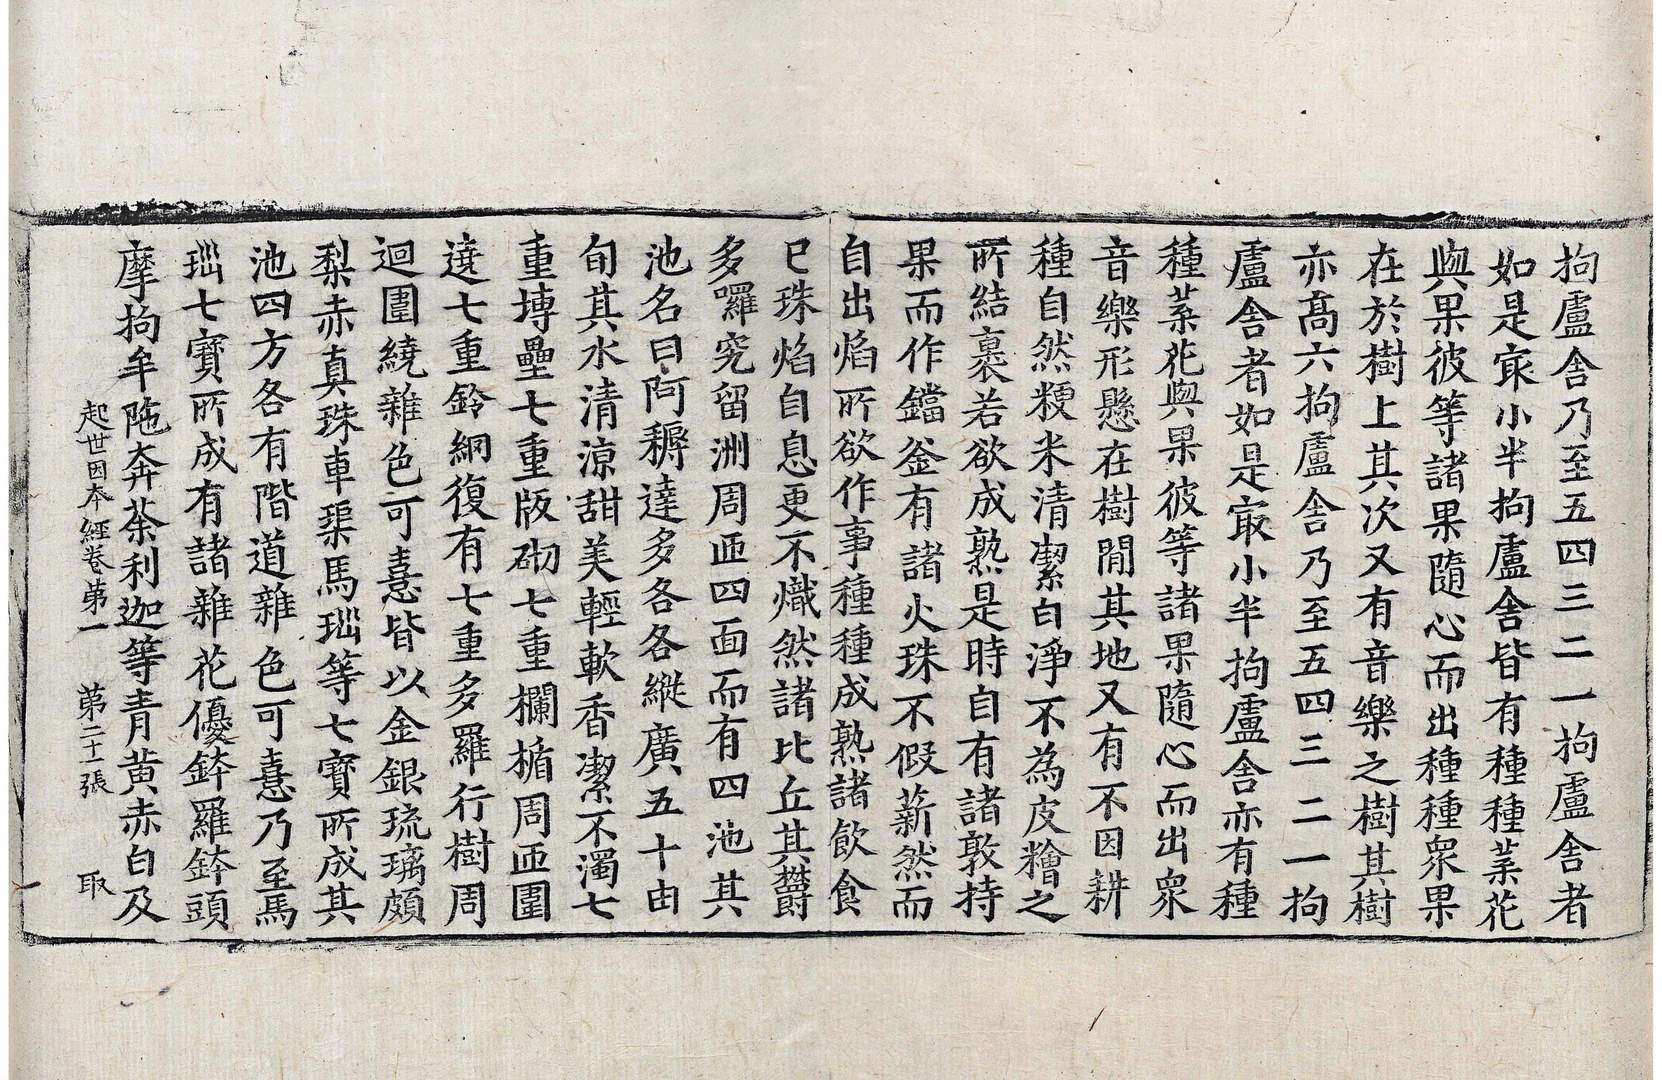 拘盧舍乃至五四三二一拘盧舍者
如是㝡小半拘盧舍皆有種種葉花
與果彼等諸果隨心而出種種衆果
在於樹上其次又有音樂之樹其樹
亦髙六拘盧舍乃至五四三二一拘
盧舍者如是㝡小半拘盧舍亦有種
種葉花與果彼等諸果隨心而出衆
音樂形懸在樹間其地又有不因耕
種自然粳米清潔白淨不為皮糩之
所結裹若欲成熟是時自有諸敦持
果而作鐺釜有諸火珠不假薪然而
自出焰所欲作事種種成熟諸飲食
已珠焰自息更不熾然諸比丘其欝
多囉究留洲周迊四面而有四池其
池名曰阿耨達多各各縱廣五十由
旬其水清涼甜美輕軟香潔不濁七
重塼壘七重版砌七重欄楯周迊圍
遶七重鈴網復有七重多羅行樹周
迴圍繞雜色可憙皆以金銀琉璃頗
梨赤真珠車𤦲馬瑙等七寳所成其
池四方各有階道雜色可憙乃至馬
瑙七寳所成有諸雜花優鉢羅鉢頭
摩拘牟陁奔荼利迦等青黄赤白及
起世因本經卷第一　第二十一張　取